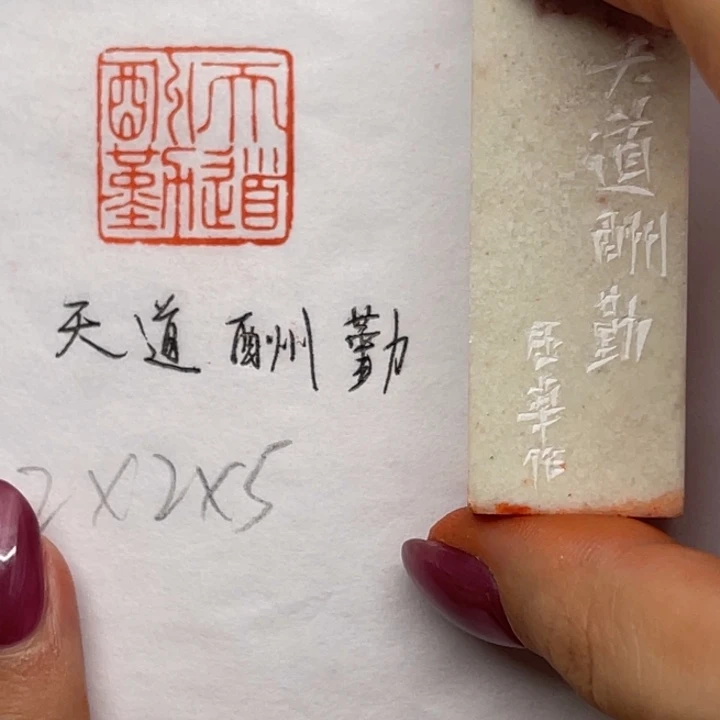 天道
酬勤
天道酬勤
2X2X5
天道酬勤
作